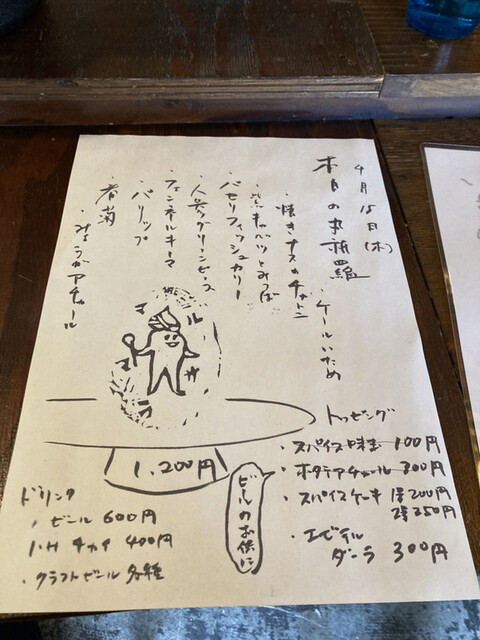 4月15日(木)
本日の曼荼羅
・ケールいため
・焼きナスのチャトニ
・キャベツとみつば
・パセリフィッシュカリー
・人参グリーンピース
・フェンネルキーマ
・バリップ
・春菊
・みょうがアチャール
マルサラ
1,200円
トッピング
・スパイス味玉 100円
・ホタテアチャール 300円
・スパイスケーキ 1コ200円
2コ350円
・エビデル
ダーラ 300円
ビールのお供に
ドリンク
・ビール 600円
・I.H チャイ 400円
・クラフトビール 各種